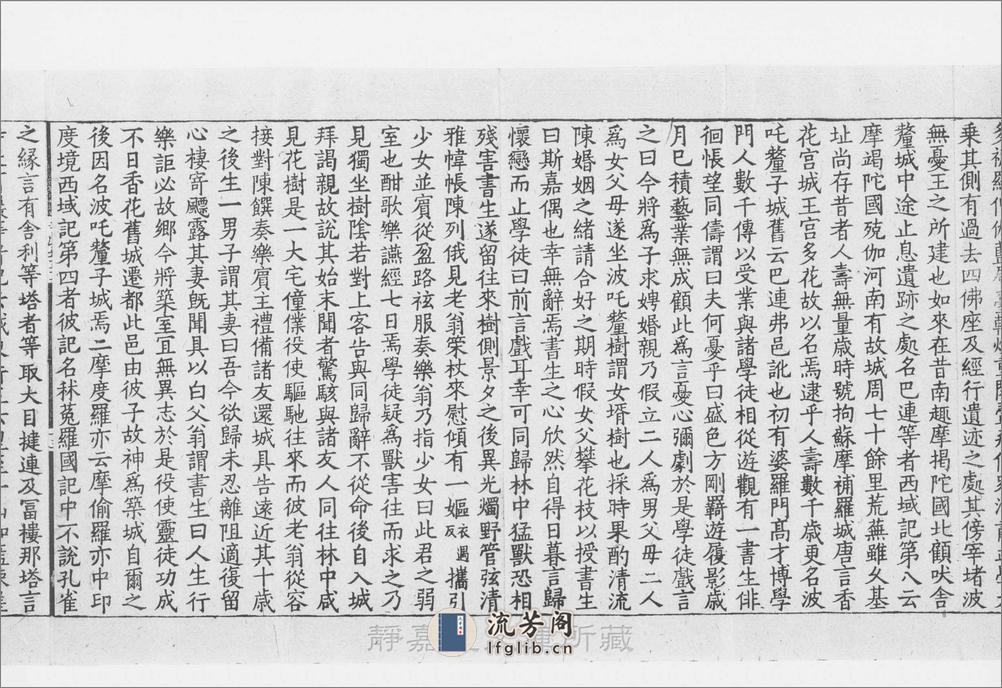 乘其側有過去四佛座及經行遺迹之處其傍窣堵波
無憂王之所建也如來在昔南趣摩揭陀國北顧吠舍
釐城中途止息遺跡之處名巴連等者西域記第八云
摩竭陀國殑伽河南有故城周七十餘里荒蕪雖久基
址尚存昔者人壽無量歲時號拘蘇摩補羅城唐言香
花宮城王宮多花故以名焉逮乎人壽數千歲更名波
吒釐子城舊云巴連弗邑訛也初有婆羅門髙才博學
門人數千傳以受業與諸學徒相從遊觀有一書生俳
徊悵望同儔謂曰夫何憂乎曰盛色方剛羇遊履影歲
月已積藝業無成顧此爲言憂心彌劇於是學徒戲言
之曰今將爲子求娉婚親乃假立二人爲男父母二人
爲女父母遂坐波吒釐樹謂女壻樹也採時果酌清流
陳婚姻之緒請合好之期時假女父攀花枝以授書生
曰斯嘉偶也幸無辭焉書生之心欣然自得日暮言歸
懷戀而止學徒曰前言戲耳幸可同歸林中猛獸恐相
殘害書生遂留往來樹側景夕之後異光燭野管弦清
雅幃帳陳列俄見老翁策杖來慰傾有一嫗衣遇反攜引
少女並賓從盈路袨服奏樂翁乃指少女曰此君之弱
室也酣歌樂讌經七日焉學徒疑爲獸害往而求之乃
見獨坐樹陰若對上客告與同歸辭不從命後自入城
拜謁親故說其始末聞者驚駭與諸友人同往林中咸
見花樹是一大宅僮僕役使驅馳往來而彼老翁從容
接對陳饌奏樂賓主禮備諸友還城具告遠近其十歲
之後生一男子謂其妻曰吾今欲歸未忍離阻適復留
心棲寄飄露其妻旣聞具以白父翁謂書生曰人生行
樂詎必故鄉今將築室宜無異志於是役使靈徒功成
不日香花舊城遷都此邑由彼子故神爲築城自爾之
後因名波吒釐子城焉二摩度羅亦云摩偷羅亦中印
度境西域記第四者彼記名秣菟羅國記中不說孔雀
之緣言有舍利等塔者等取大目揵連及冨樓那塔言
静嘉
所藏
流芳阁
lfglib.cn